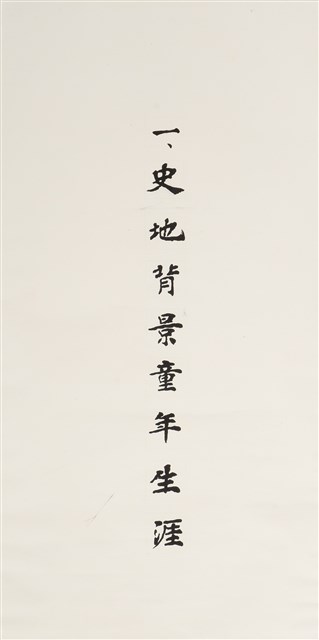 一、史地背景童年生涯